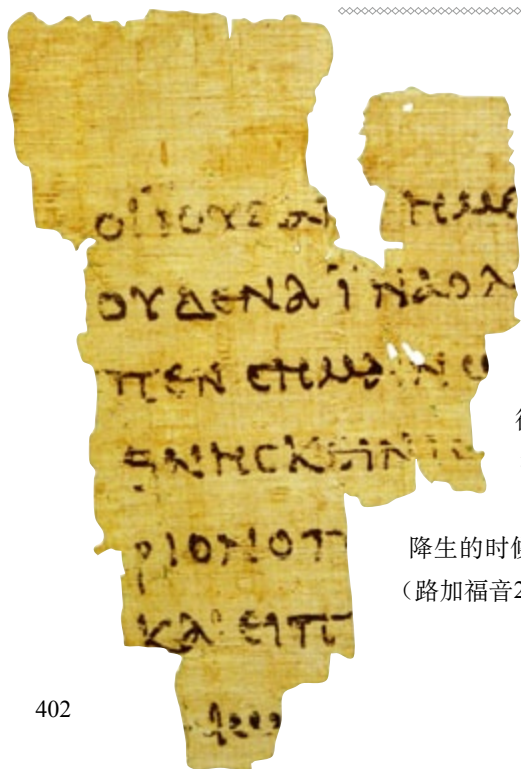 ΟΙΪΟΥΔΑΙ ΗΜΕ
ΟΥΔΕΝΑΪΝΑΟΛ
ΠΕΝCΗΜΑΙΝΩ
ΘΝΗCΚΕΙΝ
ΡΙΟΝΟΠ
ΚΑΙΕΙΠ
降生的时候
（路加福音2
402